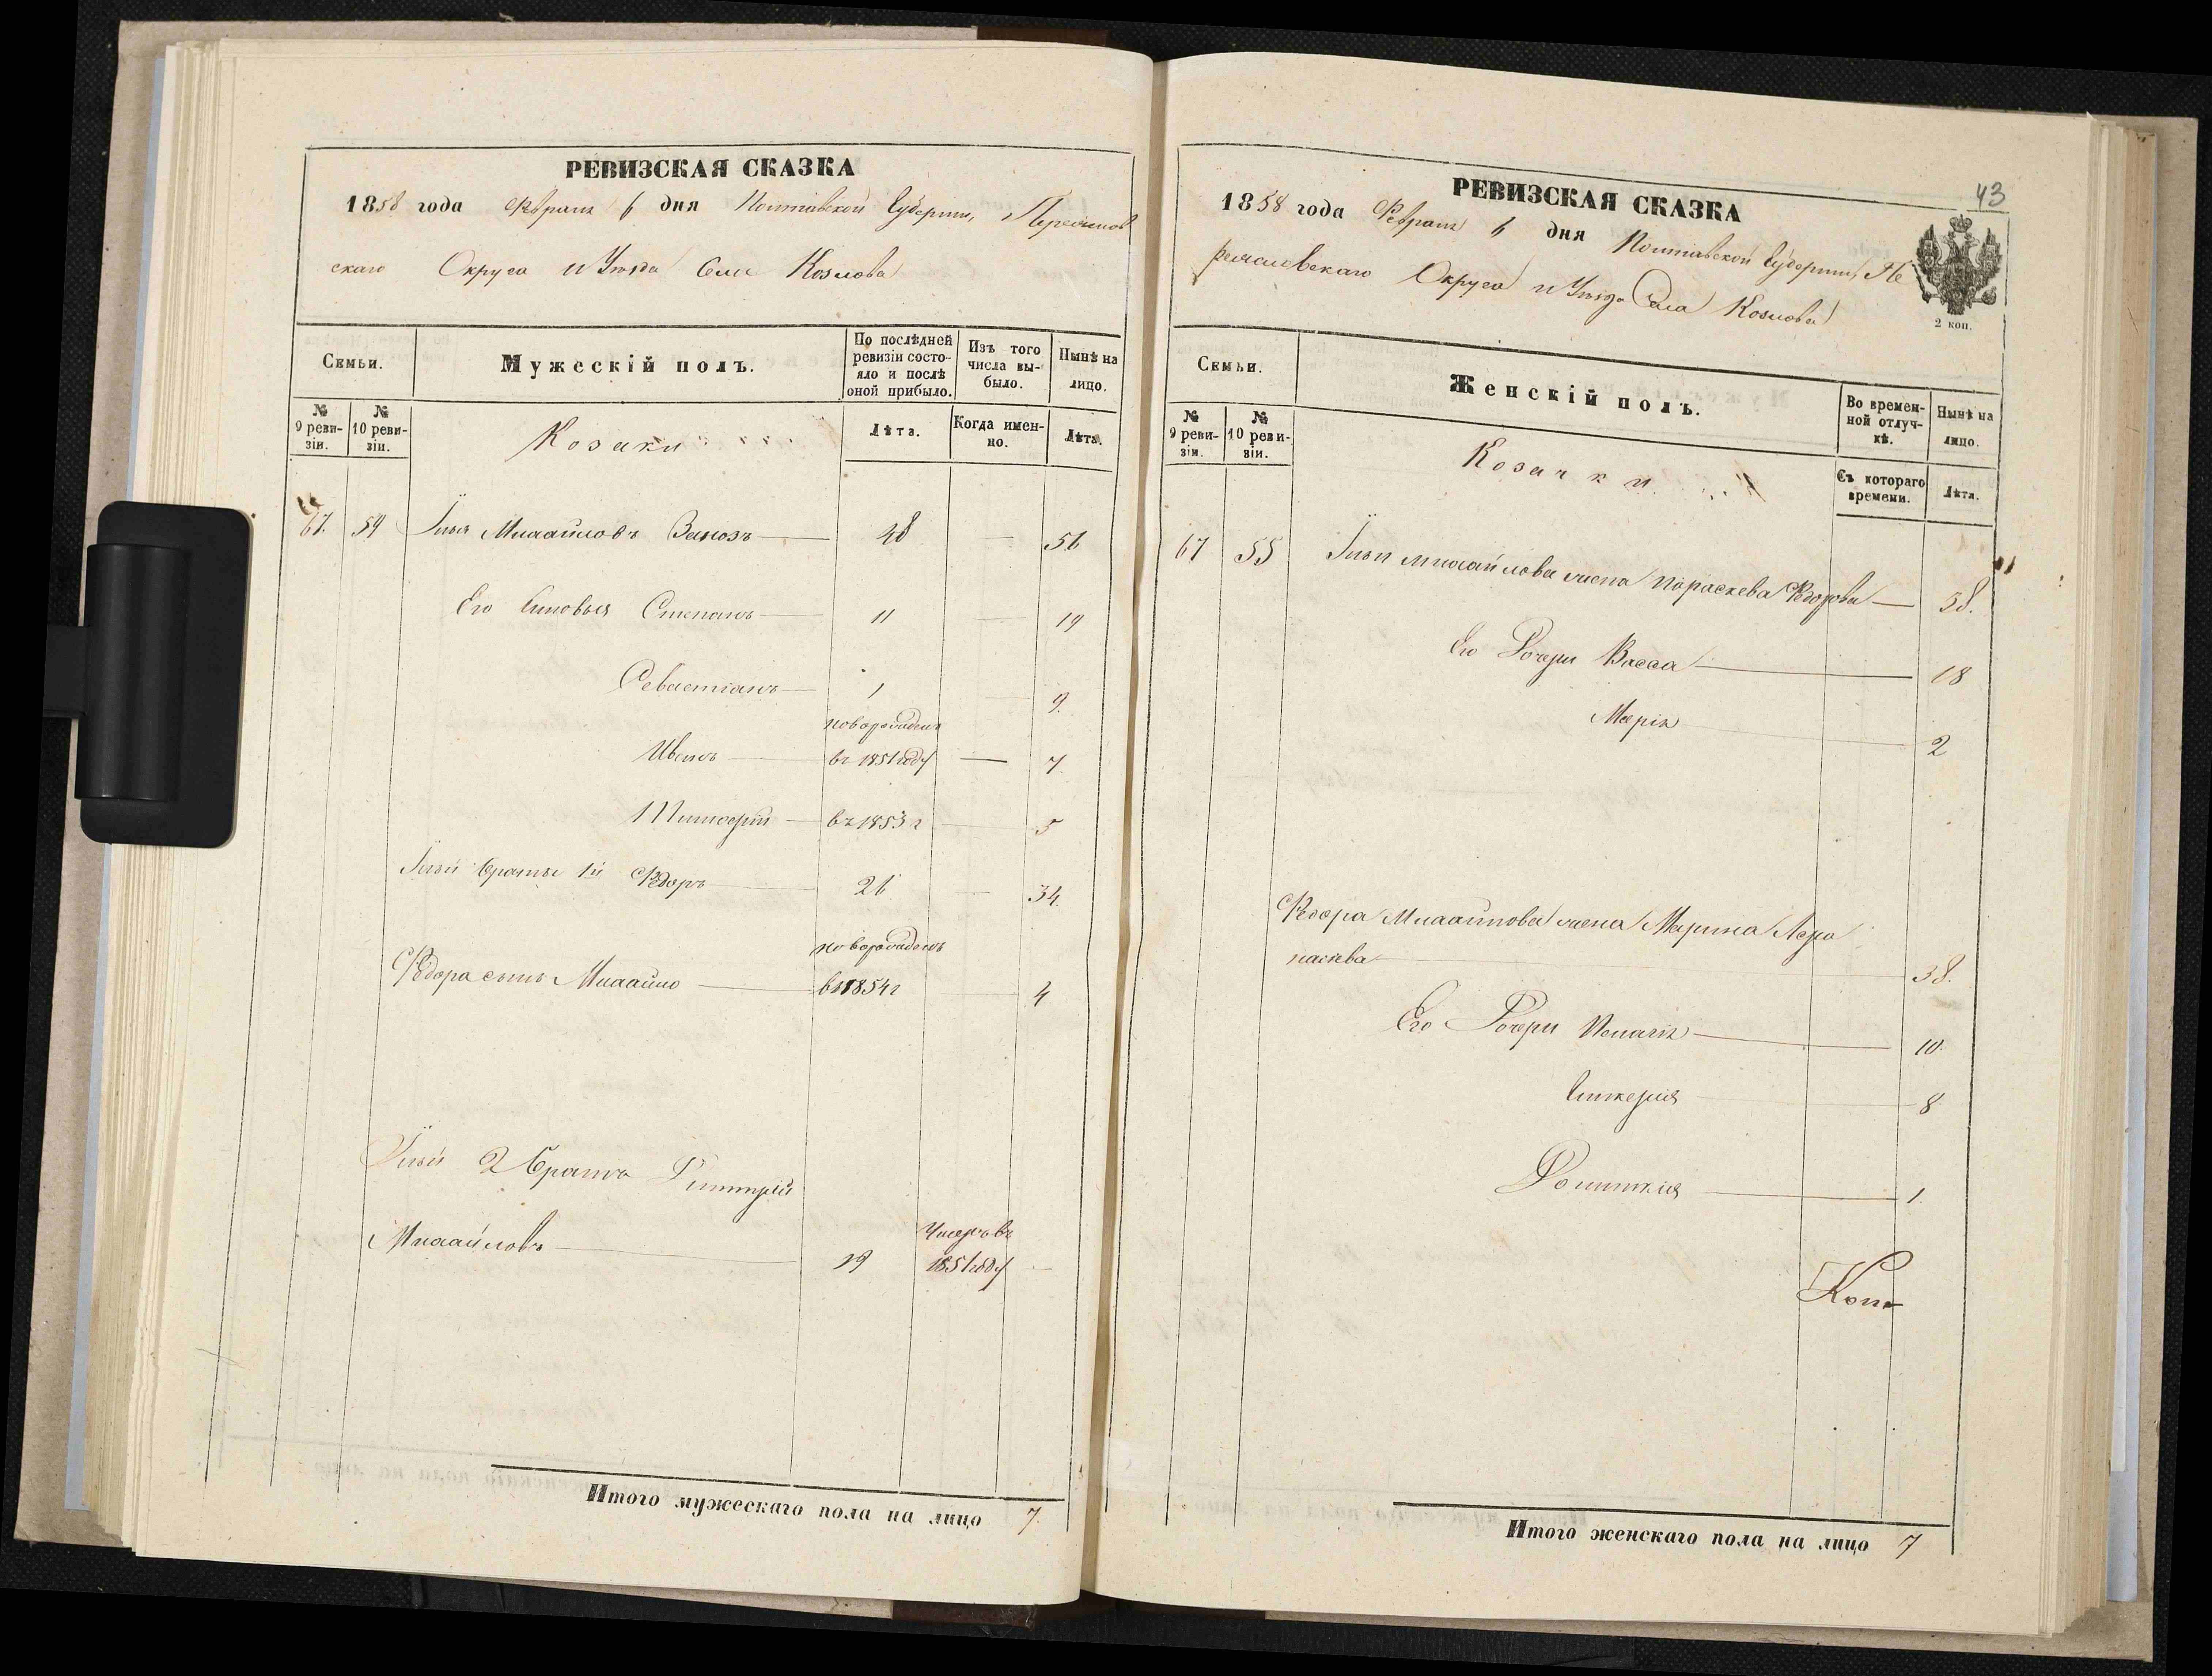 РЕВИЗСКАЯ СКАЗКА
1858 года Февраля 6 дня Полтавской Губерніи, Переяслов
скаго Округа и Уѣзда Села Козлова
Семьи.
Мужескій полъ.
По послѣдней ревизіи состояло и послѣ оной прибыло.
Изъ того числа выбыло.
Нынѣ на лицо.
№ 9 ревизіи.
№ 10 ревизіи.
Козаки
Лѣта.
Когда именно.
Лѣта.
67. 59 Илья Михайловъ 48 — 56
Его Сыновья Степанъ — 11 — 19
Севастіанъ — 1 — 9.
новорожденъ
Иванъ — въ 1851 году — 7.
Тимофей — въ 1853 г — 5
Ильи братья 1й Федоръ — 26 — 34.
новорожденъ
Федора сынъ Михайло — въ 1854 г — 4
Ильи 2 братъ Димитрій
Умеръ въ
Михайловъ — 19 1851 году —
Итого мужескаго пола на лицо 7.
43
РЕВИЗСКАЯ СКАЗКА
1858 года Февраля 6 дня Полтавской Губерніи, Пе
реяславскаго Округа и Уѣзда Села Козлова
2 коп.
Семьи.
Женскій полъ.
Во временной отлучкѣ.
Нынѣ на лицо.
№ 9 ревизіи.
№ 10 ревизіи.
Козачки
Съ котораго времени.
Лѣта.
67 55 Ильи Михайлова жена Параскева Федорова — 58.
Его Дочери Васса — 18
Марія — 2
Федора Михайлова жена Марина
38.
Его Дочери Пелагія — 10.
Гликерія — 8
Домникія — 1.
Итого женскаго пола на лицо 7